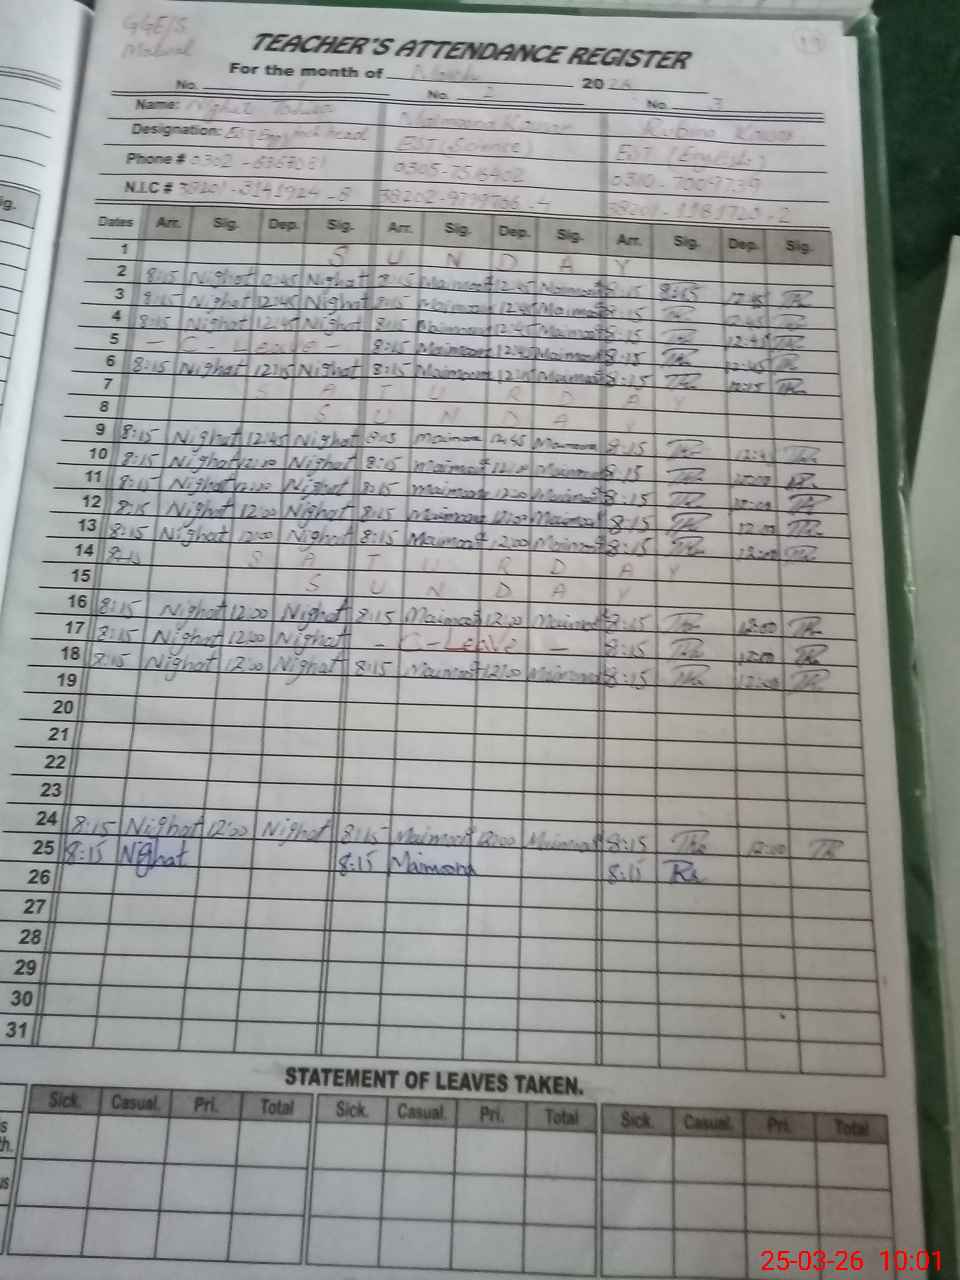 GGE/S
TEACHER'S ATTENDANCE REGISTER
For the month of March 2026
No. 1 No. 2 No. 3
Name: Nighat Maimoona Kausar Rubina Kausar
Designation: head EST (Science) EST (English)
Phone # 0302 - 0305-7516402 0310-7009739
N.I.C # 38201-3141924-8 38202-9799766-4 38201-1181720-2
Dates Arr. Sig. Dep. Sig. Arr. Sig. Dep. Sig. Arr. Sig. Dep. Sig.
1 S U N D A Y
2 8:15 Nighat 12:45 Nighat 8:15 Maimoona 12:45 Maimoona 8:15 8:15 12:45
3 8:15 Nighat 12:45 Nighat 8:15 Maimoona 12:45 Maimoona 8:15 12:45
4 8:15 Nighat 12:45 Nighat 8:15 Maimoona 12:45 Maimoona 8:15 12:45
5 - C - Leave - 8:15 Maimoona 12:45 Maimoona 8:15 12:45
6 8:15 Nighat 12:15 Nighat 8:15 Maimoona 12:15 Maimoona 8:15 12:15
7 S A T U R D A Y
8 S U N D A Y
9 8:15 Nighat 12:45 Nighat 8:15 Maimoona 12:45 Maimoona 8:15 12:45
10 8:15 Nighat Nighat 8:15 Maimoona Maimoona 8:15
11 8:15 Nighat 12:00 Nighat 8:15 Maimoona 12:00 Maimoona 8:15 12:00
12 8:15 Nighat 12:00 Nighat 8:15 Maimoona 12:00 Maimoona 8:15 12:00
13 8:15 Nighat 12:00 Nighat 8:15 Maimoona 12:00 Maimoona 8:15 12:00
14 8:15 S A T U R D A Y
15 S U N D A Y
16 8:15 Nighat 12:00 Nighat 8:15 Maimoona 12:00 Maimoona 8:15 12:00
17 8:15 Nighat 12:00 Nighat - C - Leave - 8:15 12:00
18 8:15 Nighat 12:00 Nighat 8:15 Maimoona 12:00 Maimoona 8:15 12:00
19
20
21
22
23
24 8:15 Nighat 12:00 Nighat 8:15 Maimoona 12:00 Maimoona 8:15 12:00
25 8:15 Nighat 8:15 Maimoona 8:15
26
27
28
29
30
31
STATEMENT OF LEAVES TAKEN.
Sick. Casual. Pri. Total Sick. Casual. Pri. Total Sick. Casual. Pri. Total
25-03-26 10:01